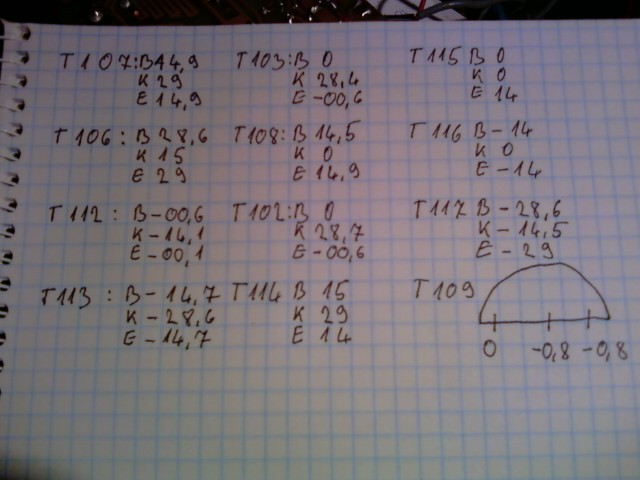 T107:B14,9
K 29
E 14,9
T103:B 0
K 28,4
E -00,6
T115 B 0
K 0
E 14
T106: B 28,6
K 15
E 29
T108: B 14,5
K 0
E 14,9
T116 B -14
K 0
E -14
T112: B -00,6
K -14,1
E -00,1
T102:B 0
K 28,7
E -00,6
T117 B -28,6
K -14,5
E -29
T113: B -14,7
K -28,6
E -14,7
T114 B 15
K 29
E 14
T109
0 -0,8 -0,8